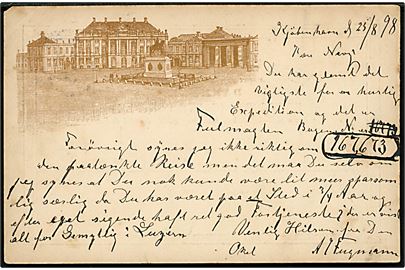 Kjøbenhavn d 25/8 98
Kære Navn
Du har glemt det
vigtigste for en hurtig
Expedition og det er
Fuldmagten Bagens No er
167673
Forøvrigt synes jeg ikke rigtig om
den paatænkte Reise men det maa Du selv om
jeg synes at Du nok kunde være lidt mere sparsom
lig særlig da Du har været paa et Sted i 3/4 Aar og
efter eget sigende haft ret god Fortjeneste
alt for Gemytlig i Luzern Venlig Hilsen fra Din
Onkel